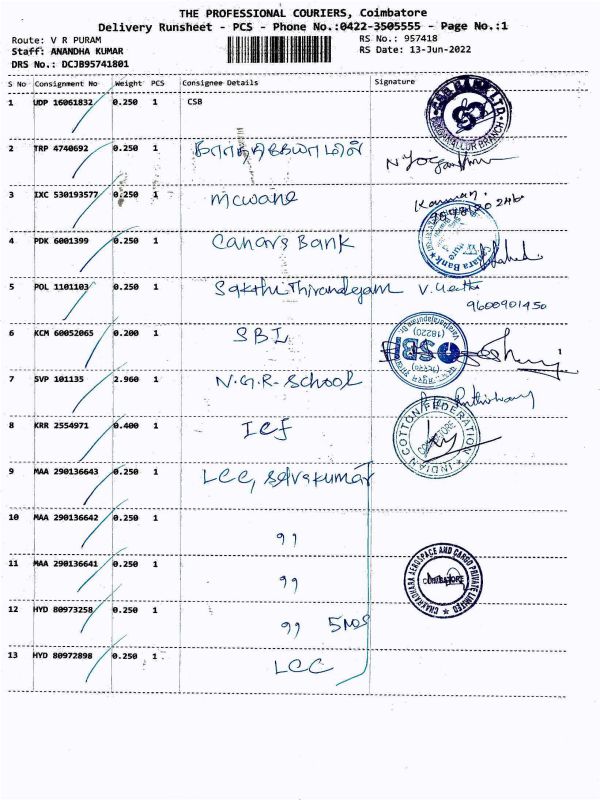 THE PROFESSIONAL COURIERS, Coimbatore
Delivery Runsheet - PCS - Phone No.:0422-3505555 - Page No.:1
Route: V R PURAM RS No.: 957418
Staff: ANANDHA KUMAR RS Date: 13-Jun-2022
DRS No.: DCJB95741801
S No Consignment No Weight PCS Consignee Details Signature
1 UDP 16061832 0.250 1 CSB
CSB BANK LTD. BRANCH
2 TRP 4740692 0.250 1
3 IXC 530193577 0.250 1 mcwane
4 PDK 6001399 0.250 1 Canara Bank
Canara Bank
5 POL 1101103 0.250 1 Sakthi Thirandeyam V.
9600901450
6 KCM 60052065 0.200 1 SBI
SBI (18220)
7 SVP 101135 2.960 1 N.G.R-School
8 KRR 2554971 0.400 1 ICF
INDIAN COTTON FEDERATION
9 MAA 290136643 0.250 1 LCC, Selvakumar
10 MAA 290136642 0.250 1 ,,
11 MAA 290136641 0.250 1 ,,
CHAKRADHARA AEROSPACE AND CARGO PRIVATE LIMITED COIMBATORE
12 HYD 80973258 0.250 1 ,, 5 NOS
13 HYD 80972898 0.250 1 LCC